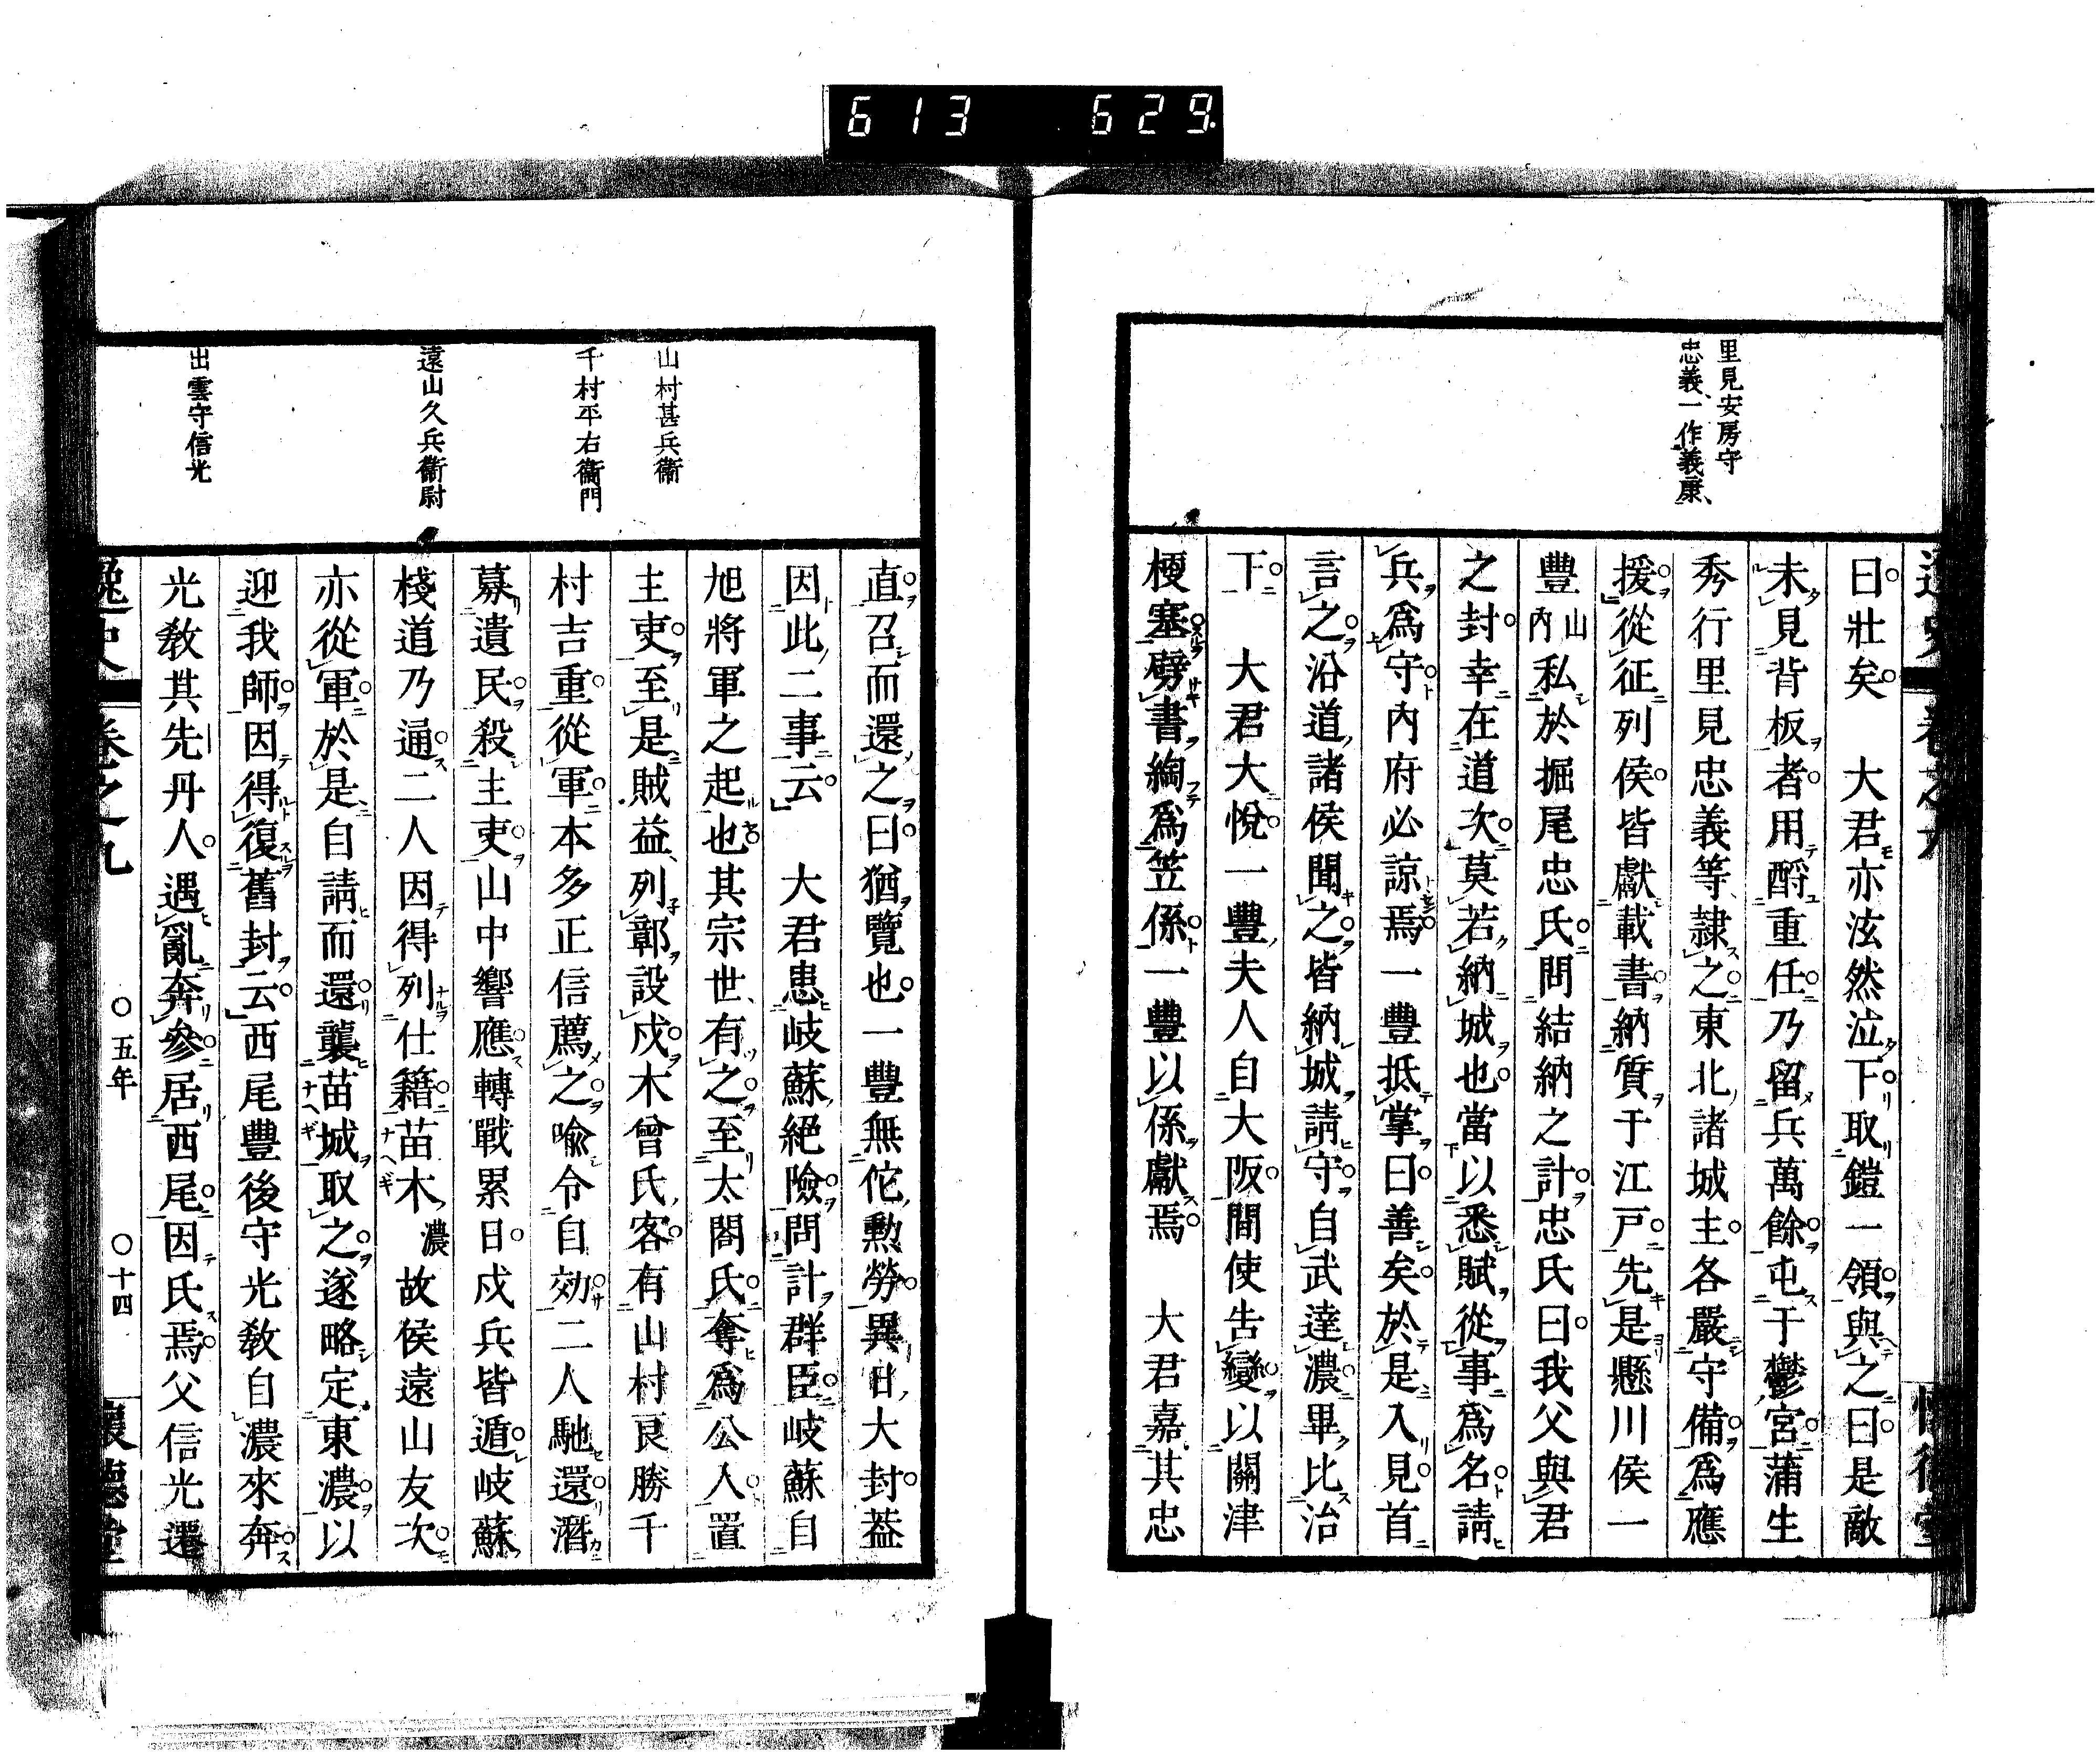 613 629
里見安房守
忠義、一作義康、
曰壯矣　大君亦泫然泣下取鎧一領與之曰是敵
未見背板者用酹重任乃留兵萬餘屯于鬱宮蒲生
秀行里見忠義等隷之東北諸城主各嚴守備爲應
援從征列侯皆獻載書納質于江戸先是懸川侯一
豐山内私於掘尾忠氏問結納之計忠氏曰我父與君
之封幸在道次莫若納城也當以悉賦從事爲名請
兵爲守内府必諒焉一豐抵掌曰善矣於是入見首
言之沿道諸侯聞之皆納城請守自武達濃畢比治
下　大君大悅一豐夫人自大阪間使告變以關津
梗塞劈書綯爲笠係一豐以係獻焉　大君嘉其忠
山村甚兵衞
千村平右衞門
遠山久兵衞尉
出雲守信光
直召而還之曰猶覽也一豐無佗勲勞異日大封葢
因此二事云　大君患岐蘇絕險問計群臣岐蘇自
旭將軍之起也其宗世有之至太閤氏奪爲公入置
主吏至是賊益列鄣設戍木曾氏客有山村良勝千
村吉重從軍本多正信薦之喩令自効二人馳還潛
募遺民殺主吏山中響應轉戰累日戍兵皆遁岐蘇
棧道乃通二人因得列仕籍苗木濃故侯遠山友次
亦從軍於是自請而還襲苗城取之遂略定東濃以
迎我師因得復舊封云西尾豐後守光敎自濃來奔
光敎其先丹人遇亂奔參居西尾因氏焉父信光還
逸史　卷之九　○五年　○十四　懷德堂